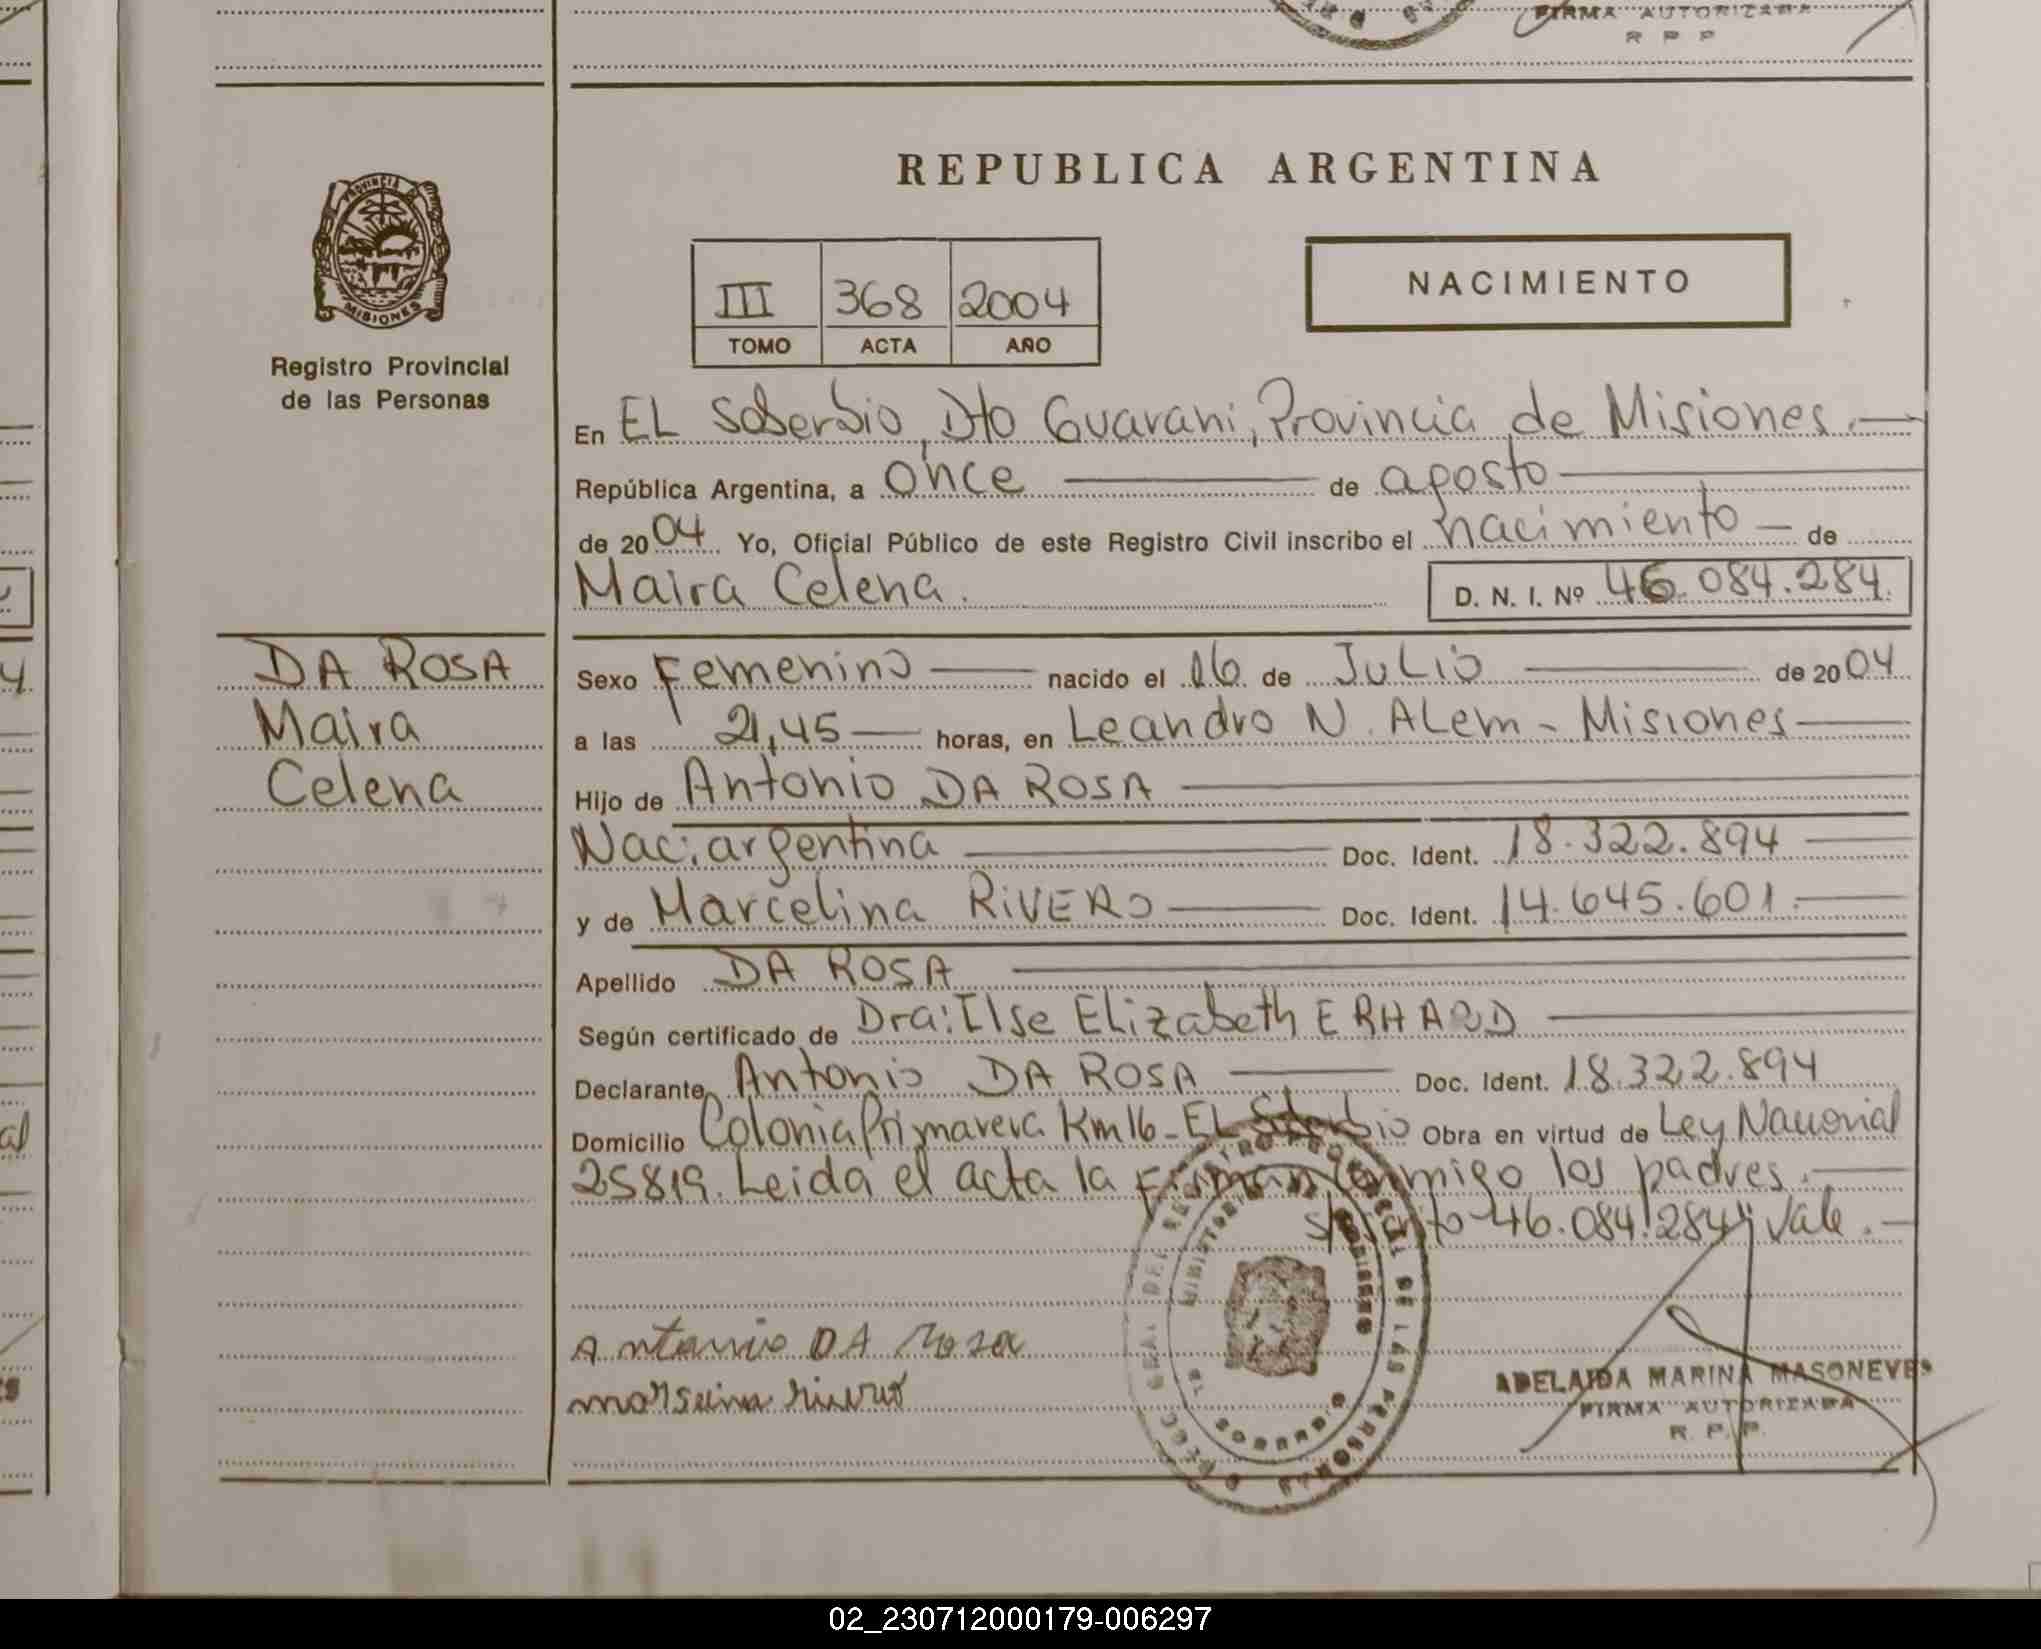 FIRMA AUTORIZADA
R P P
PROVINCIA DE
MISIONES
Registro Provincial
de las Personas
REPUBLICA ARGENTINA
III 368 2004
TOMO ACTA AÑO
NACIMIENTO
En EL Soberbio, Dto Guarani, Provincia de Misiones.
República Argentina, a once de agosto
de 2004 Yo, Oficial Público de este Registro Civil inscribo el nacimiento de
Maira Celena.
D. N. I. Nº 46.084.284.
DA ROSA
Maira
Celena
Sexo Femenino nacido el 16 de JULIO de 2004
a las 21,45 horas, en Leandro N. ALem - Misiones
Hijo de Antonio DA ROSA
Nac: argentina Doc. Ident. 18.322.894
y de Marcelina RIVERO Doc. Ident. 14.645.601.
Apellido DA ROSA
Según certificado de Dra: Ilse Elizabeth ERHARD
Declarante Antonio DA ROSA Doc. Ident. 18.322.894
Domicilio Colonia Primavera Km 16 - EL Soberbio Obra en virtud de Ley Nacional
25819. Leida el acta la Firman conmigo los padres.
46.084.284 Vale.
Antonio DA Rosa
ADELAIDA MARINA MASONEVES
FIRMA AUTORIZADA
R. P. P.
02_230712000179-006297